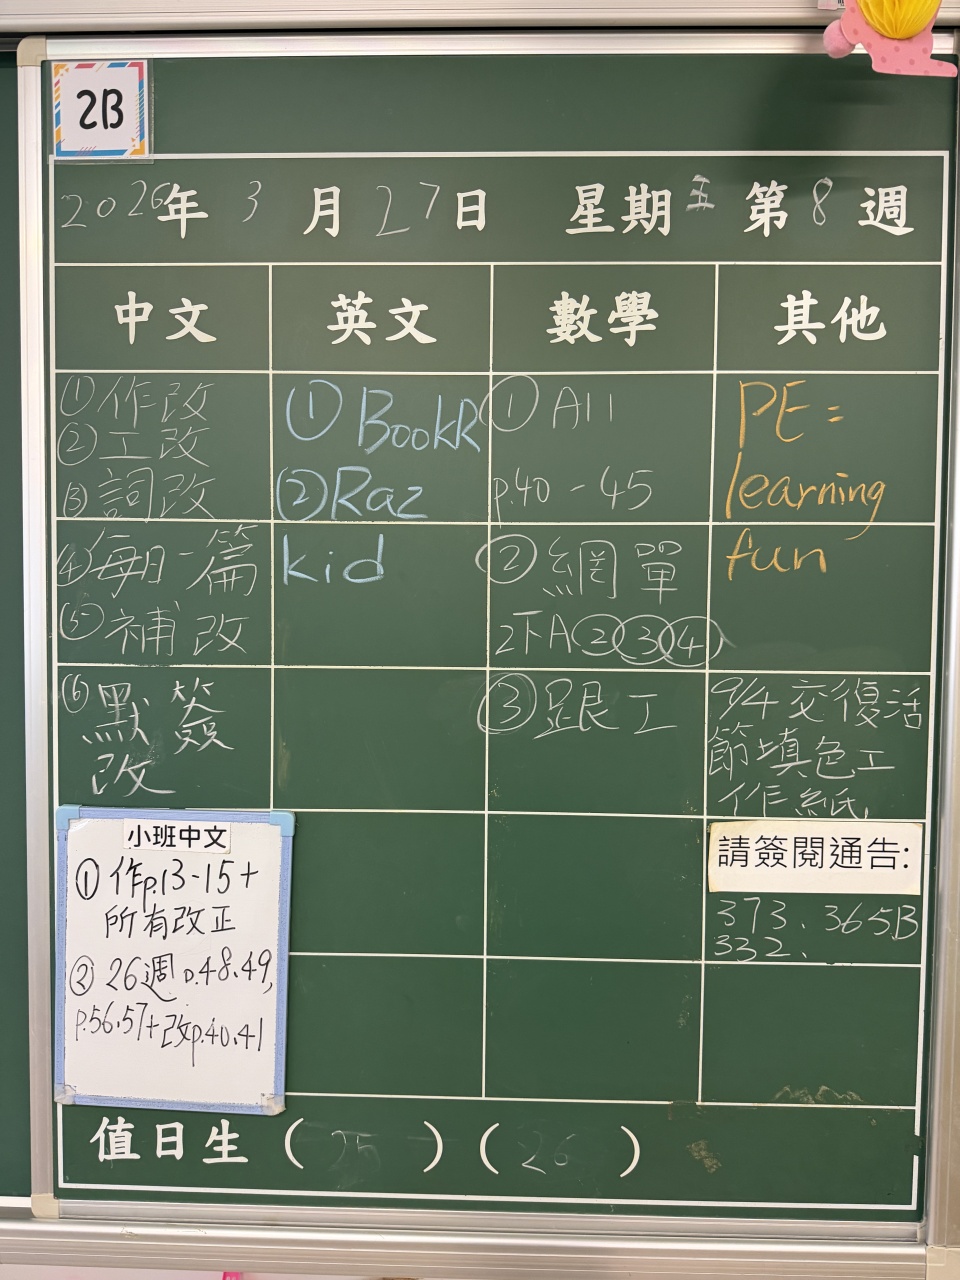 2B
2026年 3月 27日 星期五 第8週
中文
①作改
②工改
③詞改
④每日一篇
⑤補改
⑥默簽
改
小班中文
①作p.13-15+
所有改正
②26週p.48.49,
p.56.57+改p.40.41
英文
①BookR
②Raz
kid
數學
①A11
p.40-45
②網單
2下A②③④
③跟工
其他
PE=
learning
fun
9/4交復活
節填色工
作紙.
請簽閱通告:
373、365B
332、
值日生(25)(26)